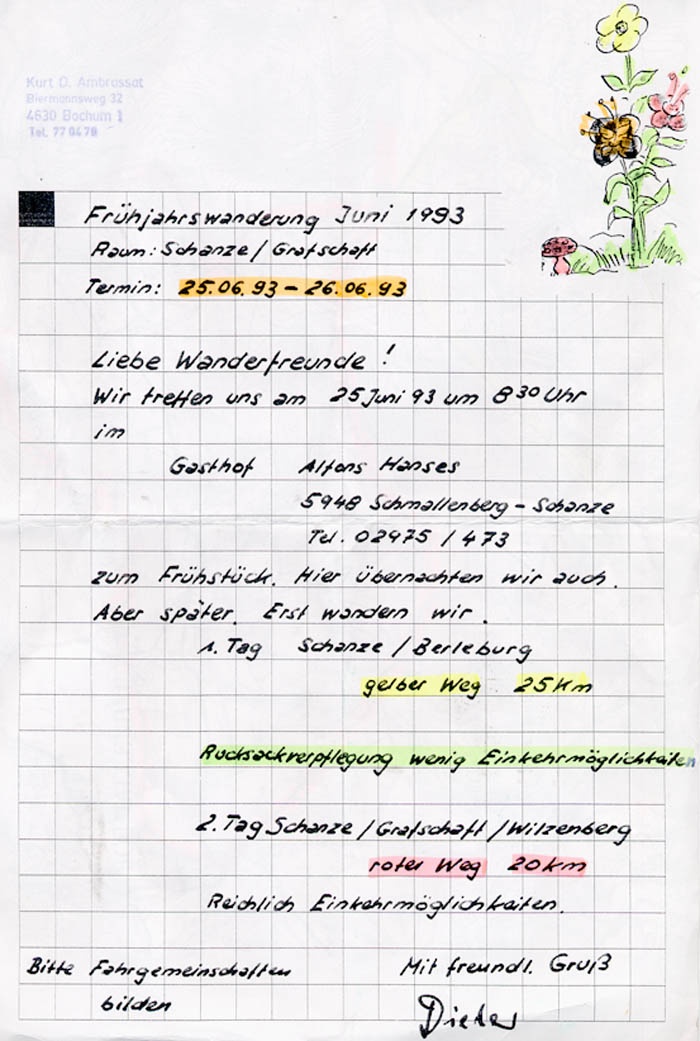 Kurt D. Ambrossat
Biermannsweg 32
4630 Bochum 1
Tel. 77 04 78
Frühjahrswanderung Juni 1993
Raum: Schanze / Grafschaft
Termin: 25.06.93 - 26.06.93
Liebe Wanderfreunde!
Wir treffen uns am 25 Juni 93 um 8 30 Uhr
im
Gasthof Alfons Hanses
5948 Schmallenberg - Schanze
Tel. 02975 / 473
zum Frühstück. Hier übernachten wir auch.
Aber später. Erst wandern wir.
1. Tag Schanze / Berleburg
gelber Weg 25 km
Rucksackverpflegung wenig Einkehrmöglichkeiten
2. Tag Schanze / Grafschaft / Wilzenberg
roter Weg 20 km
Reichlich Einkehrmöglichkeiten.
Bitte Fahrgemeinschaften
bilden
Mit freundl. Gruß
Dieter